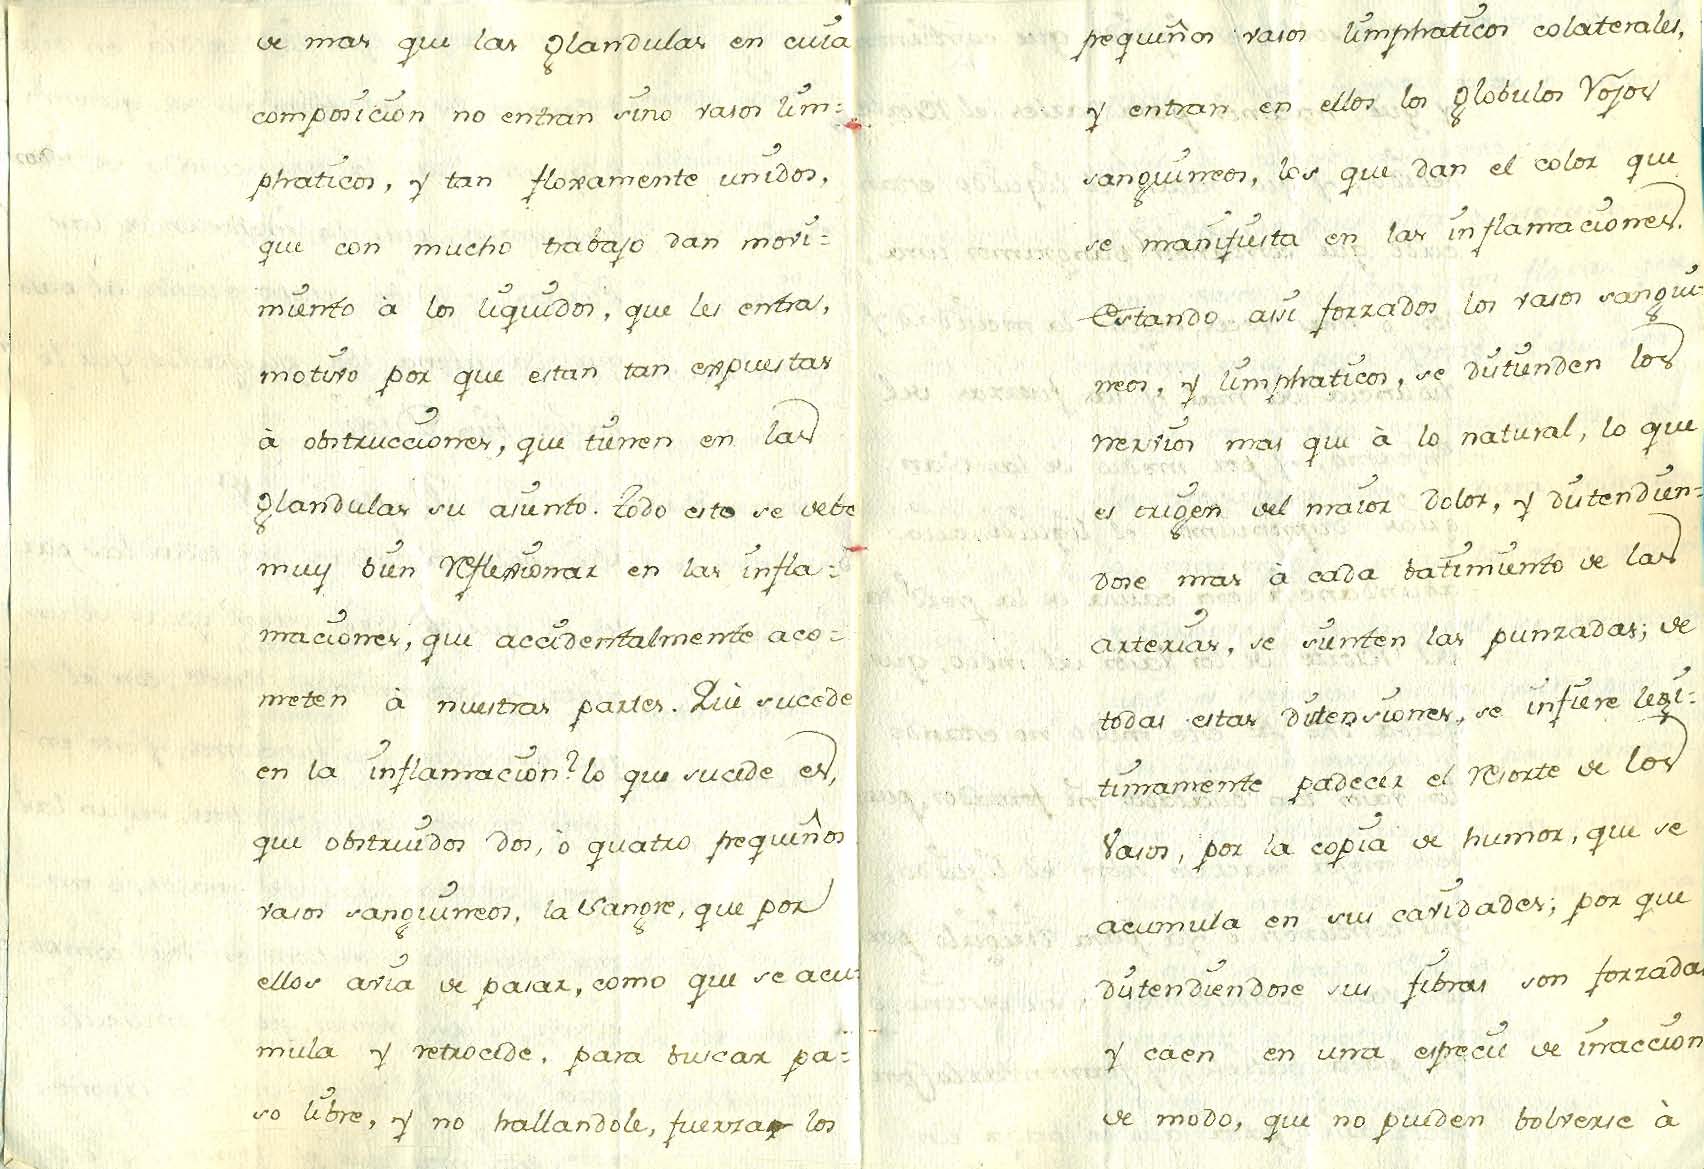 de mas que las glandulas en cuia
composicion no entran sino vasos lim=
phaticos, y tan floxamente unidos,
que con mucho trabajo dan movi=
miento à los liquidos, que les entra,
motivo por que estan tan expuestas
à obstrucciones, que tienen en las
glandulas su asiento. Todo esto se debe
muy bien reflexionar en las infla=
maciones, que accidentalmente aco=
meten à nuestras partes. Què sucede
en la inflamacion? lo que sucede es,
que obstruidos dos, ò quatro pequeños
vasos sanguineos, la sangre, que por
ellos avia de pasar, como que se acu=
mula y retrocede, para buscar pa=
so libre, y no hallandole, fuerza los
pequeños vasos limphaticos colaterales,
y entran en ellos los globulos rojos
sanguineos, los que dan el color que
se manifiesta en las inflamaciones.
Estando asi forzados los vasos sangui-
neos, y limphaticos, se distienden los
nervios mas que à lo natural, lo que
es origen del maior dolor, y distendien=
dose mas à cada batimiento de las
arterias, se sienten las punzadas; de
todas estas distensiones, se infiere legi=
timamente padecer el resorte de los
vasos, por la copia de humor, que se
acumula en sus cavidades; por que
distendiendose sus fibras son forzadas
y caen en una especie de inaccion
de modo, que no pueden bolverse à